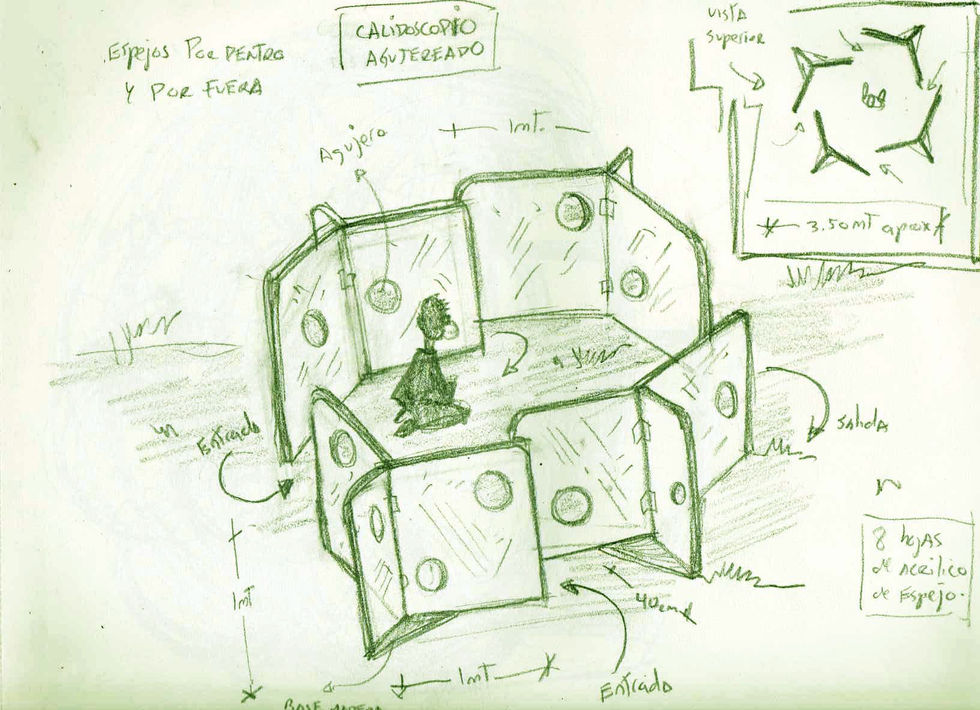 CALIDOSCOPIO
AGUJEREADO
Espejos Por DENTRO
Y POR FUERA
vista
Superior
3.50mt aprox
Agujero
1mt.
Entrada
Salida
8 hojas
de Acrilico
de Espejo.
1mt
40cm
1mt
Entrada
BASE